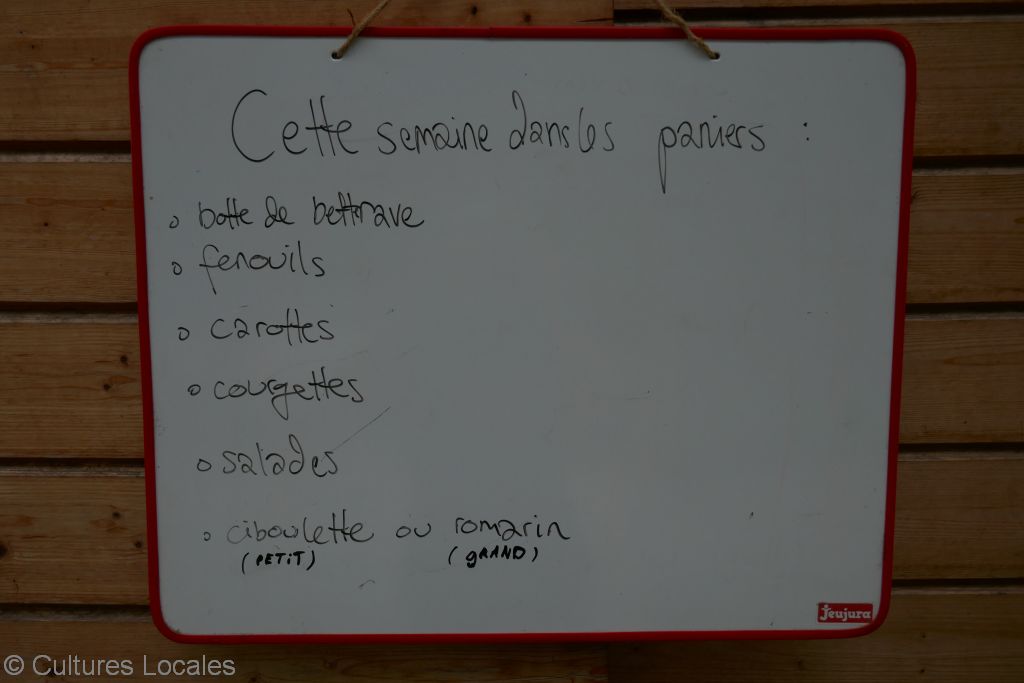 Cette semaine dans les paniers :
o botte de bettrave
o fenouils
o carottes
o courgettes
o salades
o ciboulette ou romarin
(PETiT) (gRAND)
Jeujura
© Cultures Locales